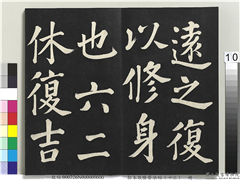 遠之復
以修身
也六二
休復吉
10